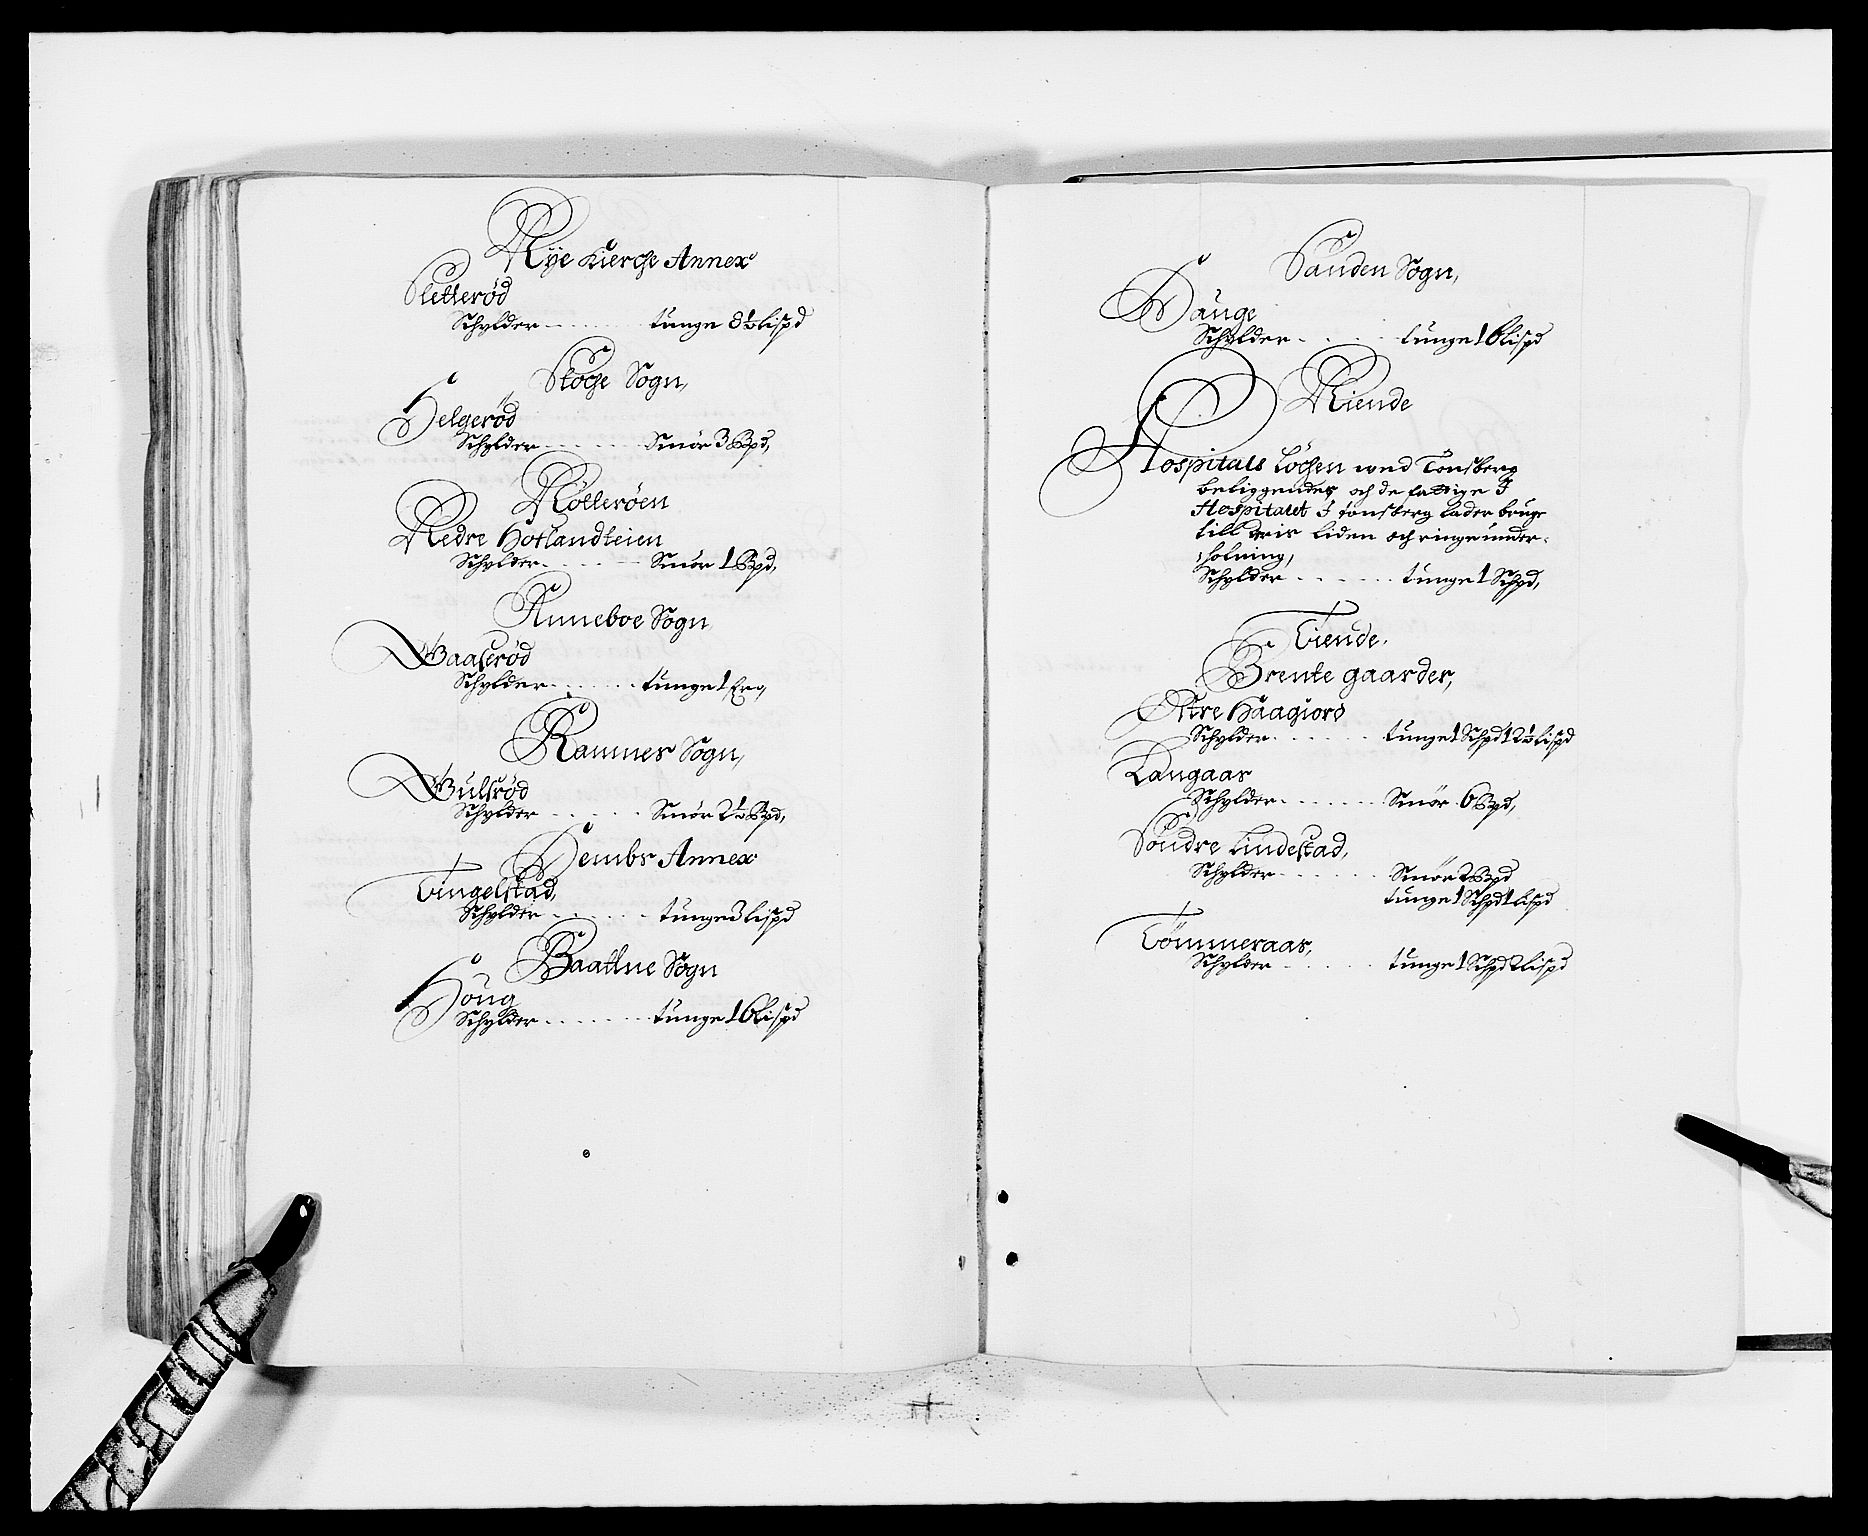 Nÿe Kierche Annex
Sletterød
Schÿlder - - - - - tunge 8½ lispd
Stoche Sogn,
Helgerød
Schÿlder - - - - - Smör 3 Bpd,
Nötterøen
Nedre Hotlandteien
Schÿlder - - - - - Smör 1 Bpd,
Anneboe Sogn
Baaserød
Schÿlder - - - - - tunge 1
Ramnes Sogn,
Bulsrød
Schÿlder - - - - - Smör 2½ Bpd,
Hembs Annex
Tingelstad,
Schÿlder - - - - - tunge 3 lispd
Baattne Sogn
Houg
Schÿlder - - - - - tunge 16 lispd
Sanden Sogn,
Hauge
Schÿlder - - - - - tunge 16 lispd
Niende
Hospitals Löchen wed Tonsberg
beliggendes och de fattige I
Hospitalet I tonsberg lader bruge
till deris liden och ringe under-
holning,
Schÿlder - - - - - tunge 1 Schpd,
Tiende.
Brente gaarder,
Østre Haagiord
Schÿlder - - - - - tunge 1 Schpd 12½ lispd
Langaas
Schÿlder - - - - - Smör 6 Bpd,
Söndre Lindestad,
Schÿlder - - - - - Smör 2 Bpd
tunge 1 Schpd 1 lispd
Tömmeraas,
Schÿlder - - - - - tunge 1 Schpd 2 lispd